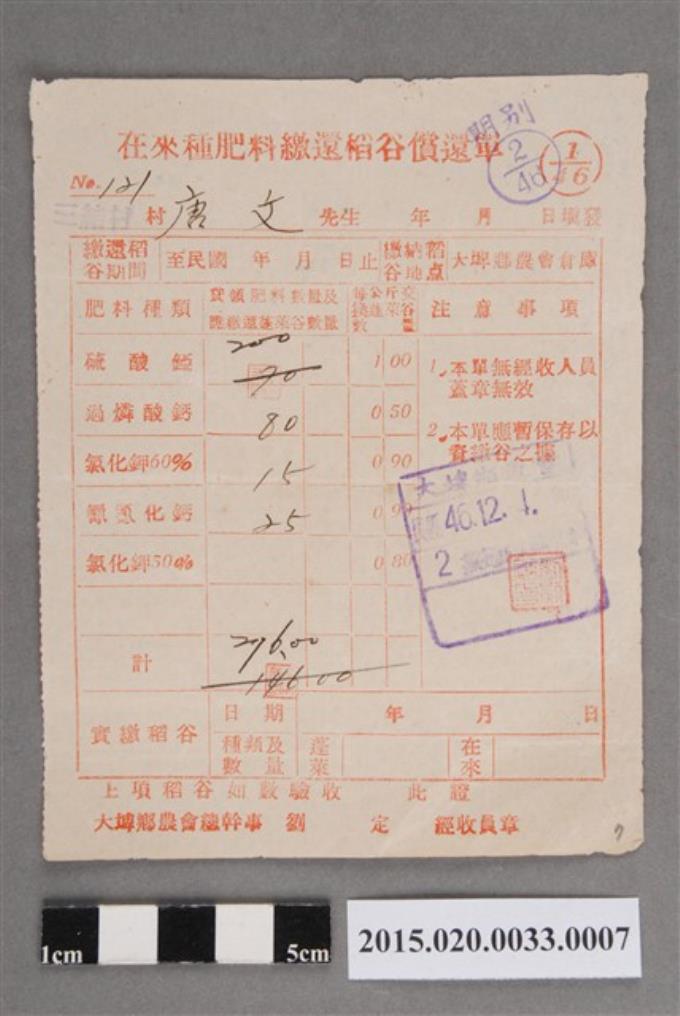 期別
2/46
1/46
在來種肥料繳還稻谷償還單
No. 121
村 唐文 先生 年 月 日填發
繳還稻谷期間 至民國 年 月 日止 繳納稻谷地點 大埤鄉農會倉庫
肥料種類 實領肥料數量及應繳還蓬萊谷數量 每公斤交換蓬萊谷數量 注意事項
硫酸錏 200 70 1 00
過燐酸鈣 80 0 50
氯化鉀60% 15 0 90
氰氮化鈣 25 0 90
氯化鉀50% 0 80
1. 本單無經收人員蓋章無效
2. 本單應暫保存以資繳谷之據
46.12.1.
2
計 296.00
146.00
實繳稻谷 日期 年 月 日
種類及數量 蓬萊 在來
上項稻谷如數驗收 此證
大埤鄉農會總幹事 劉 定 經收員章
7
1cm 5cm
2015.020.0033.0007